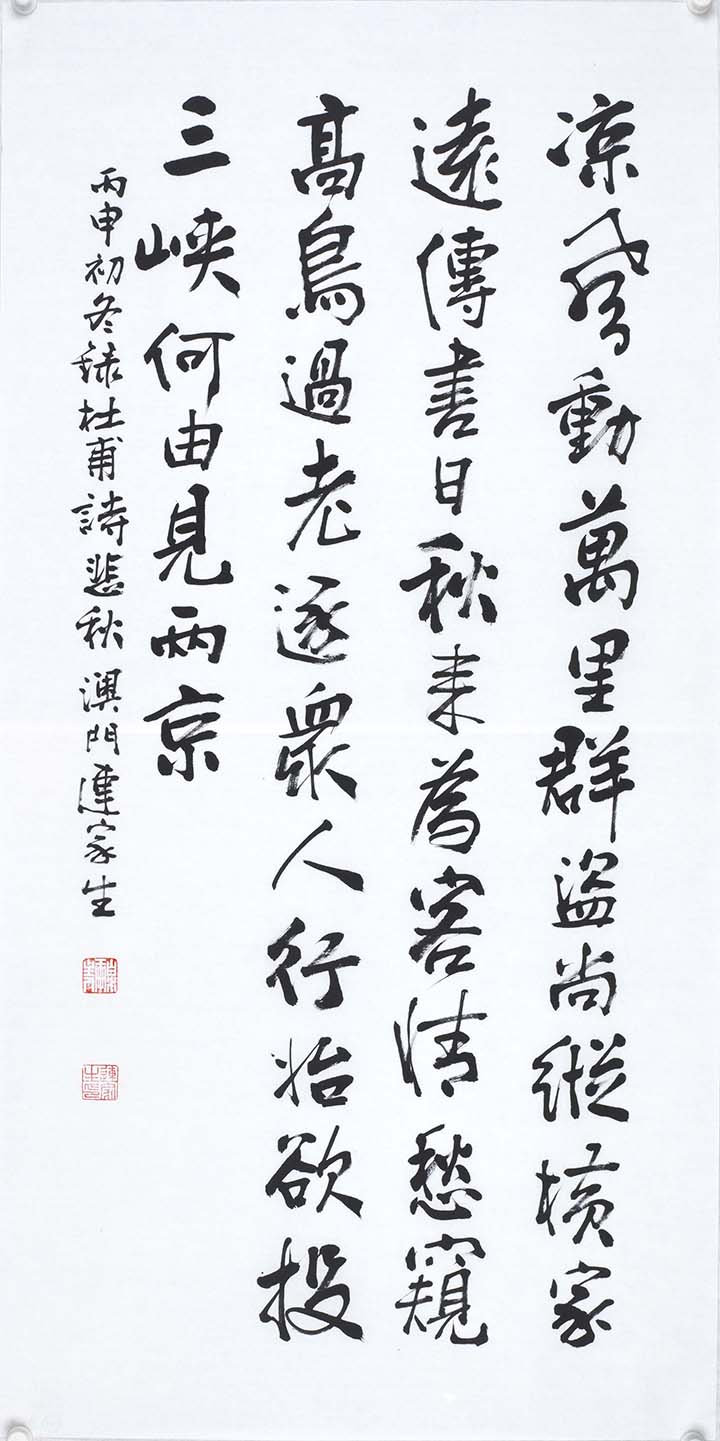 凉風動萬里群盜尚縱橫家
遠傳書日秋来為客情愁窺
高鳥過老逐眾人行始欲投
三峽何由見兩京
丙申初冬録杜甫詩悲秋澳門連家生